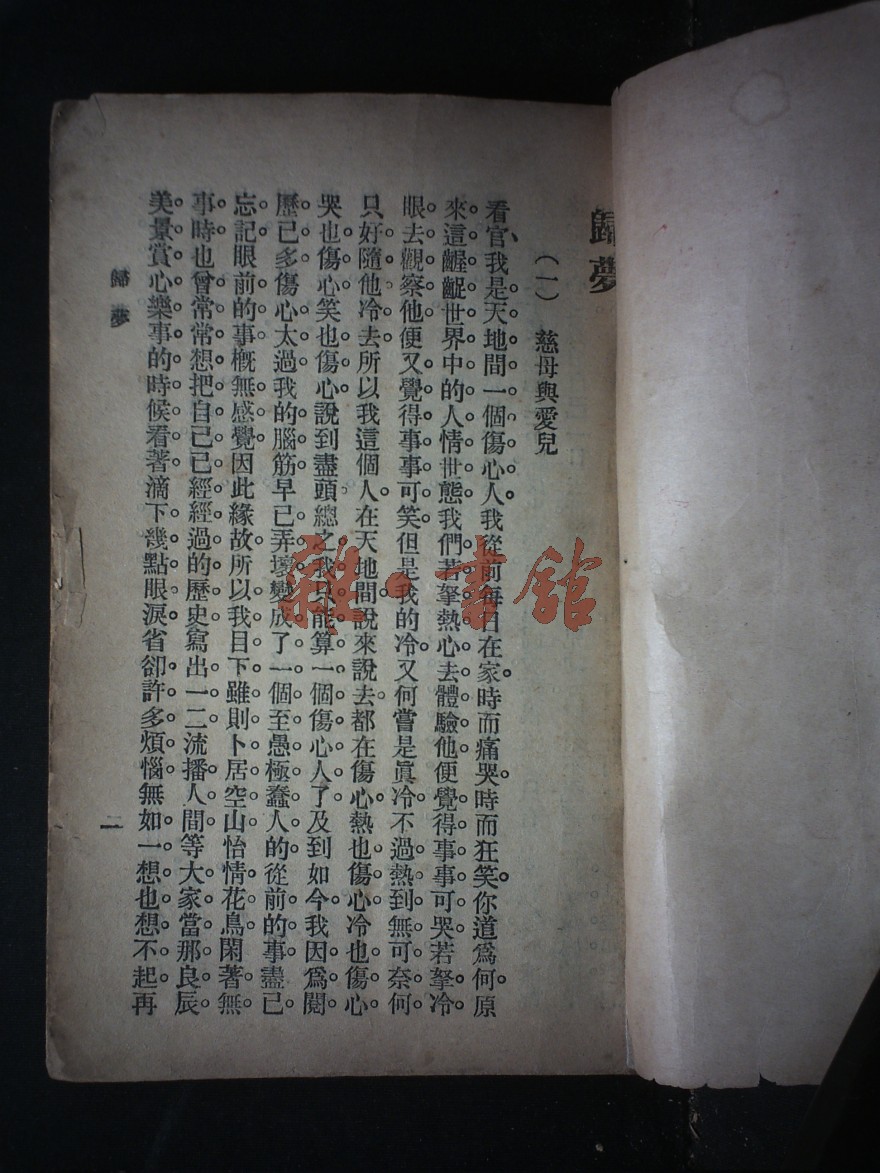 歸夢
(一) 慈母與愛兒
看官、我是天地間一個傷心人。我從前每日在家。時而痛哭。時而狂笑。你道爲何。原
來這齷齪世界中的人情世態。我們若拏熱心去體驗他。便覺得事事可哭。若拏冷
眼去觀察他。便又覺得事事可笑。但是我的冷。又何嘗是眞冷。不過熱到無可奈何。
只好隨他冷去。所以我這個人。在天地間。說來說去。都在傷心。熱也傷心。冷也傷心。
哭也傷心。笑也傷心。說到盡頭。總之我只能算一個傷心人了。及到如今。我因爲閱
歷已多。傷心太過。我的腦筋。早已弄壞。變成了一個至愚極蠢人的。從前的事。盡已
忘記。眼前的事。槪無感覺。因此緣故。所以我目下雖則卜居空山。怡情花鳥。閑著無
事時。也曾常常想把自己已經經過的歷史。寫出一二。流播人間。等大家當那良辰。
美景。賞心樂事的時候。看著滴下幾點眼淚。省卻許多煩惱。無如一想也想不起。再
歸夢
一
雜·書館